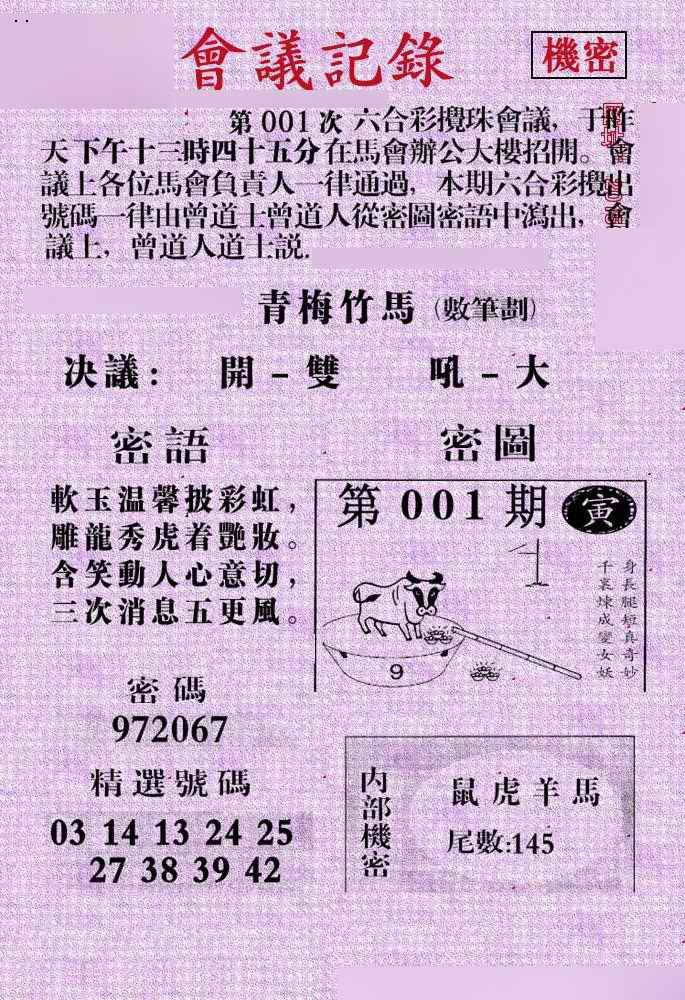 會議記錄
機密
第001次 六合彩攪珠會議，于昨
天下午十三時四十五分在馬會辦公大樓招開。會
議上各位馬會負責人一律通過，本期六合彩攪出
號碼一律由曾道士曾道人從密圖密語中瀉出，會
議上，曾道人道士説.
青梅竹馬（數筆劃）
决議： 開－雙 吼－大
密語
軟玉温馨披彩虹，
雕龍秀虎着艷妝。
含笑動人心意切，
三次消息五更風。
密圖
第001期 寅
身長腿短真奇妙
千裏煉成變女妖
9
密碼
972067
精選號碼
03 14 13 24 25
27 38 39 42
内部機密
鼠虎羊馬
尾數:145